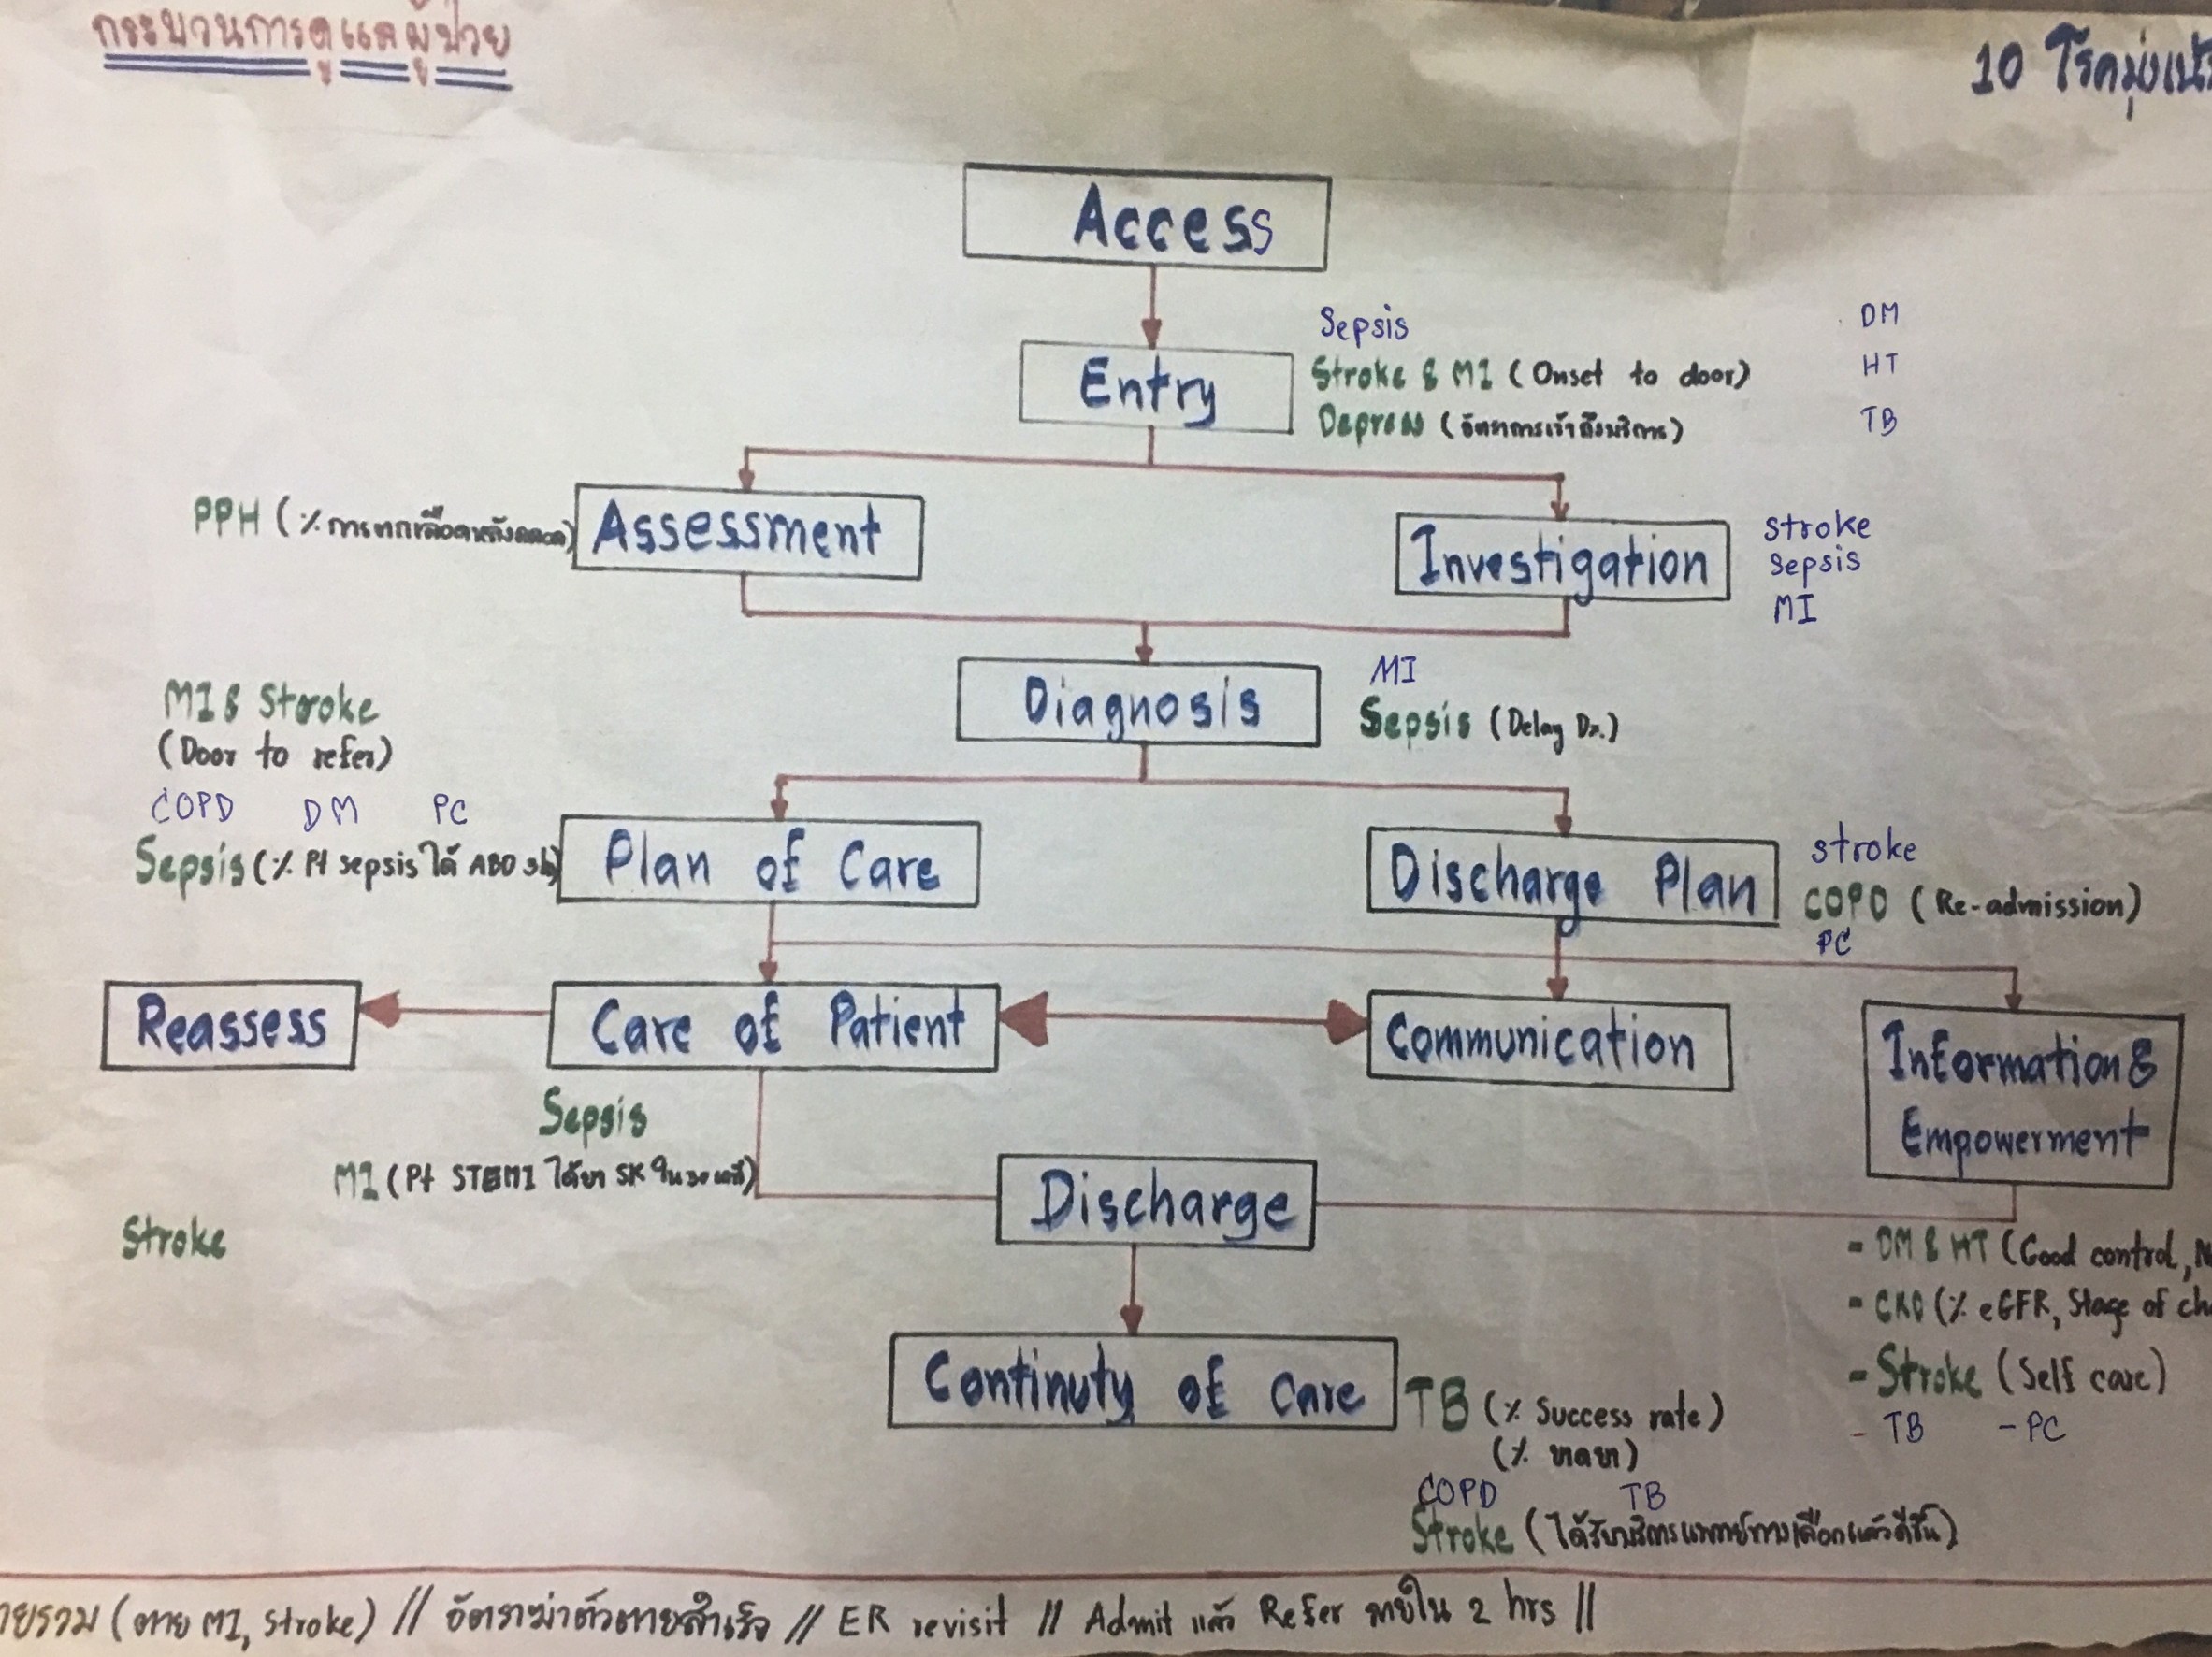 กระบวนการดูแลผู้ป่วย
10 โรคมุ่งเน้
Access
Sepsis
DM
Entry
Stroke & MI (Onset to door)
HT
Depress (อัตราการเข้าถึงบริการ)
TB
PPH (% การตกเลือดหลังคลอด)
Assessment
Investigation
stroke
sepsis
MI
Diagnosis
MI
Sepsis (Delay Dx.)
MI & Stroke
(Door to refer)
COPD DM PC
Sepsis (% Pt sepsis ได้
Plan of Care
Discharge Plan
stroke
COPD (Re-admission)
PC
Reassess
Care of Patient
Communication
Information &
Empowerment
Sepsis
MI (Pt STEMI ได้ยา SK ใน 30 นาที)
Stroke
Discharge
- DM & HT (Good control,
- CKD (% eGFR, Stage of ch
- Stroke (Self care)
- TB - PC
Continuty of Care
TB (% Success rate)
(% ขาดยา)
COPD TB
Stroke (ได้รับบริการแพทย์ทางเลือกแล้วดีขึ้น)
ายรวม (ตาย MI, Stroke) // อัตราฆ่าตัวตายสำเร็จ // ER revisit // Admit แล้ว Refer ภายใน 2 hrs //